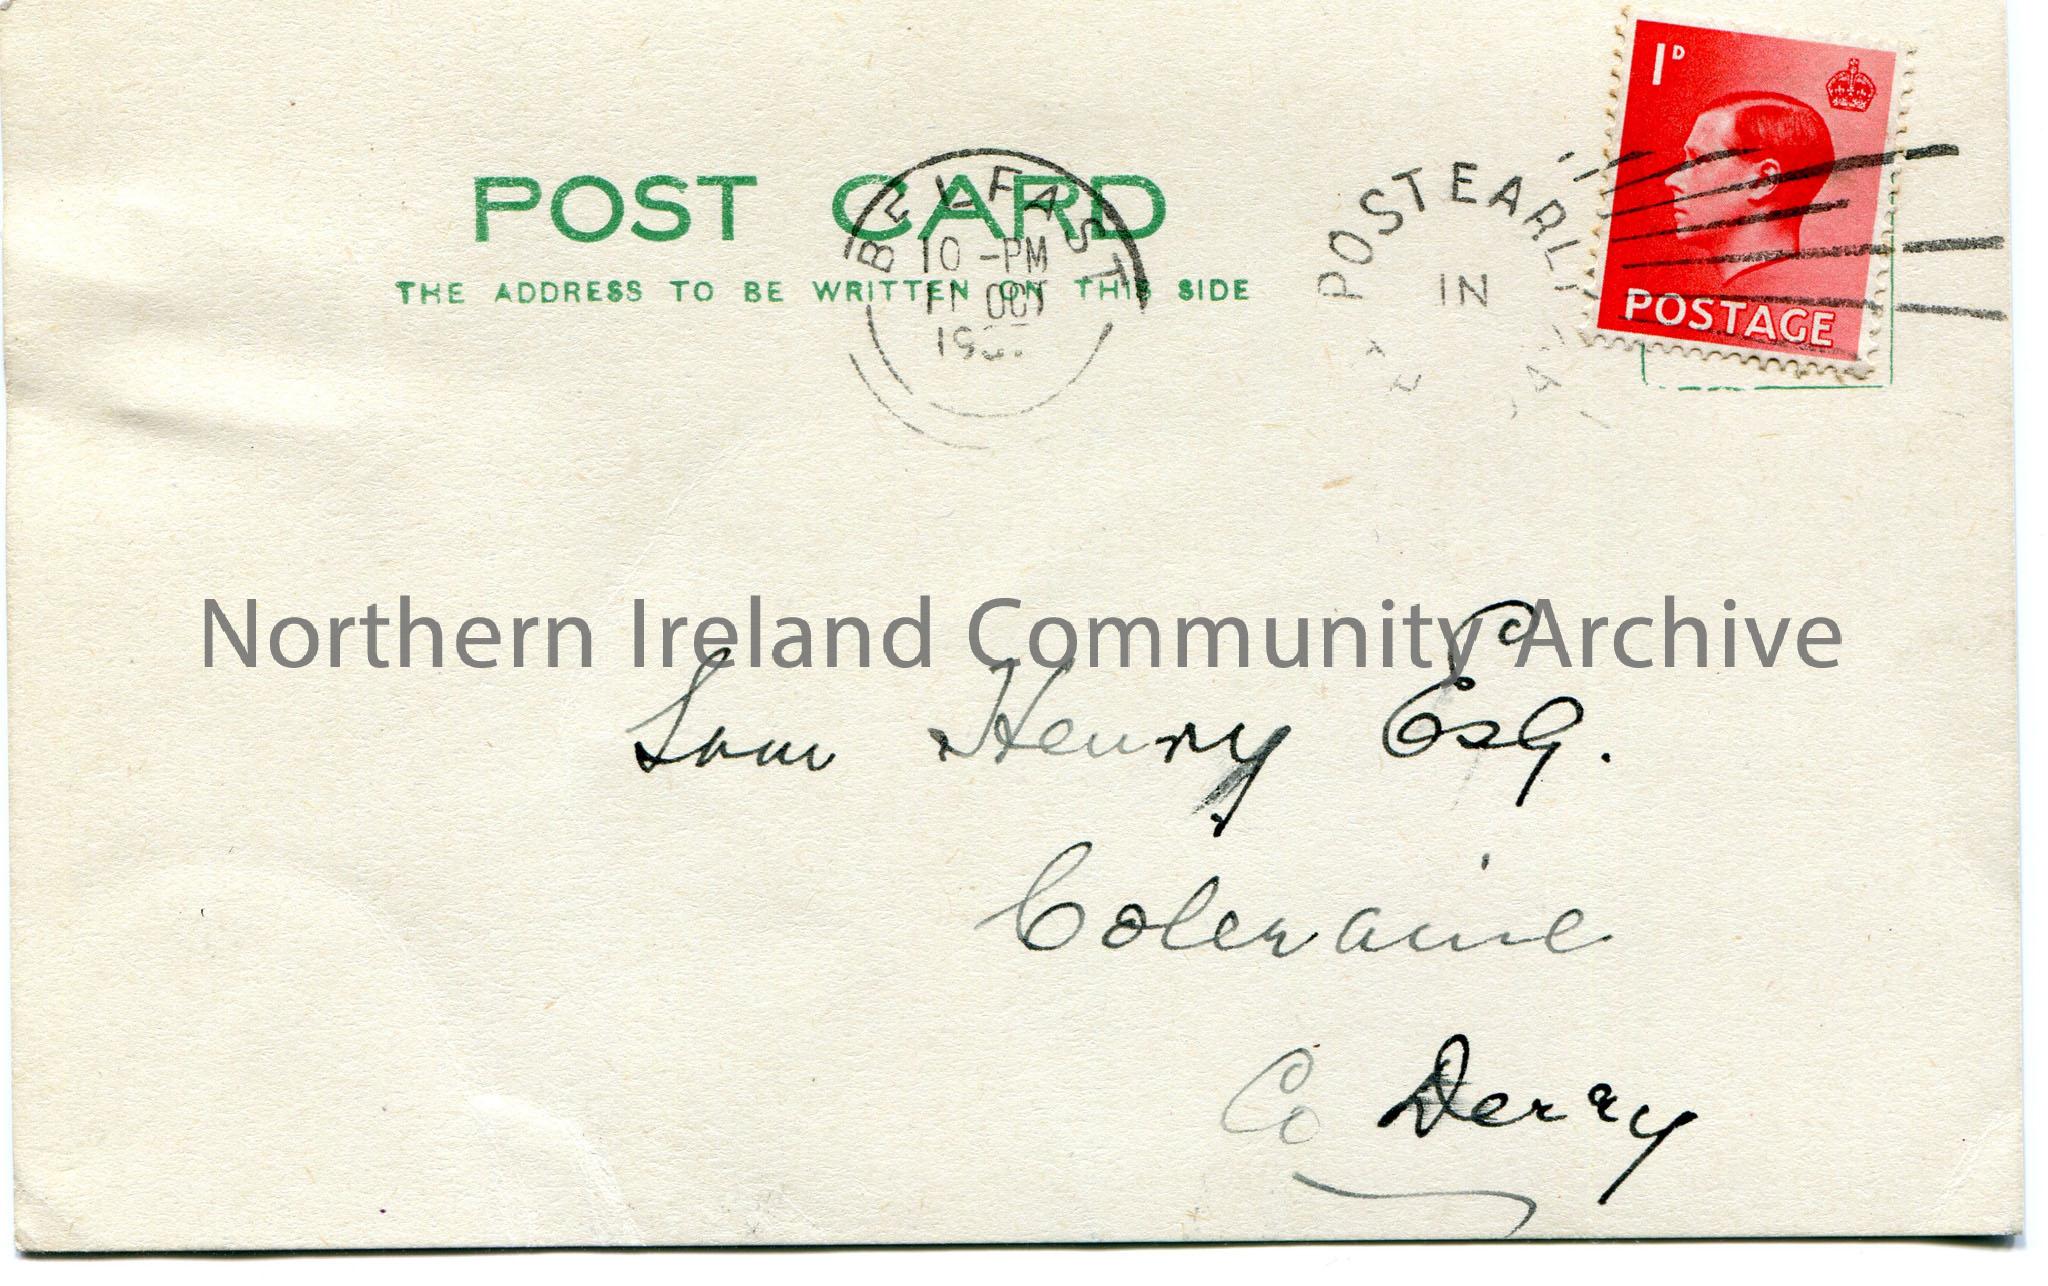 1D
POST CARD
BELFAST
10 -PM
11 OCT
POST EARLY
IN
POSTAGE
THE ADDRESS TO BE WRITTEN ON THIS SIDE
Northern Ireland Community Archive
Sam Henry Esq.
Coleraine
Co Derry